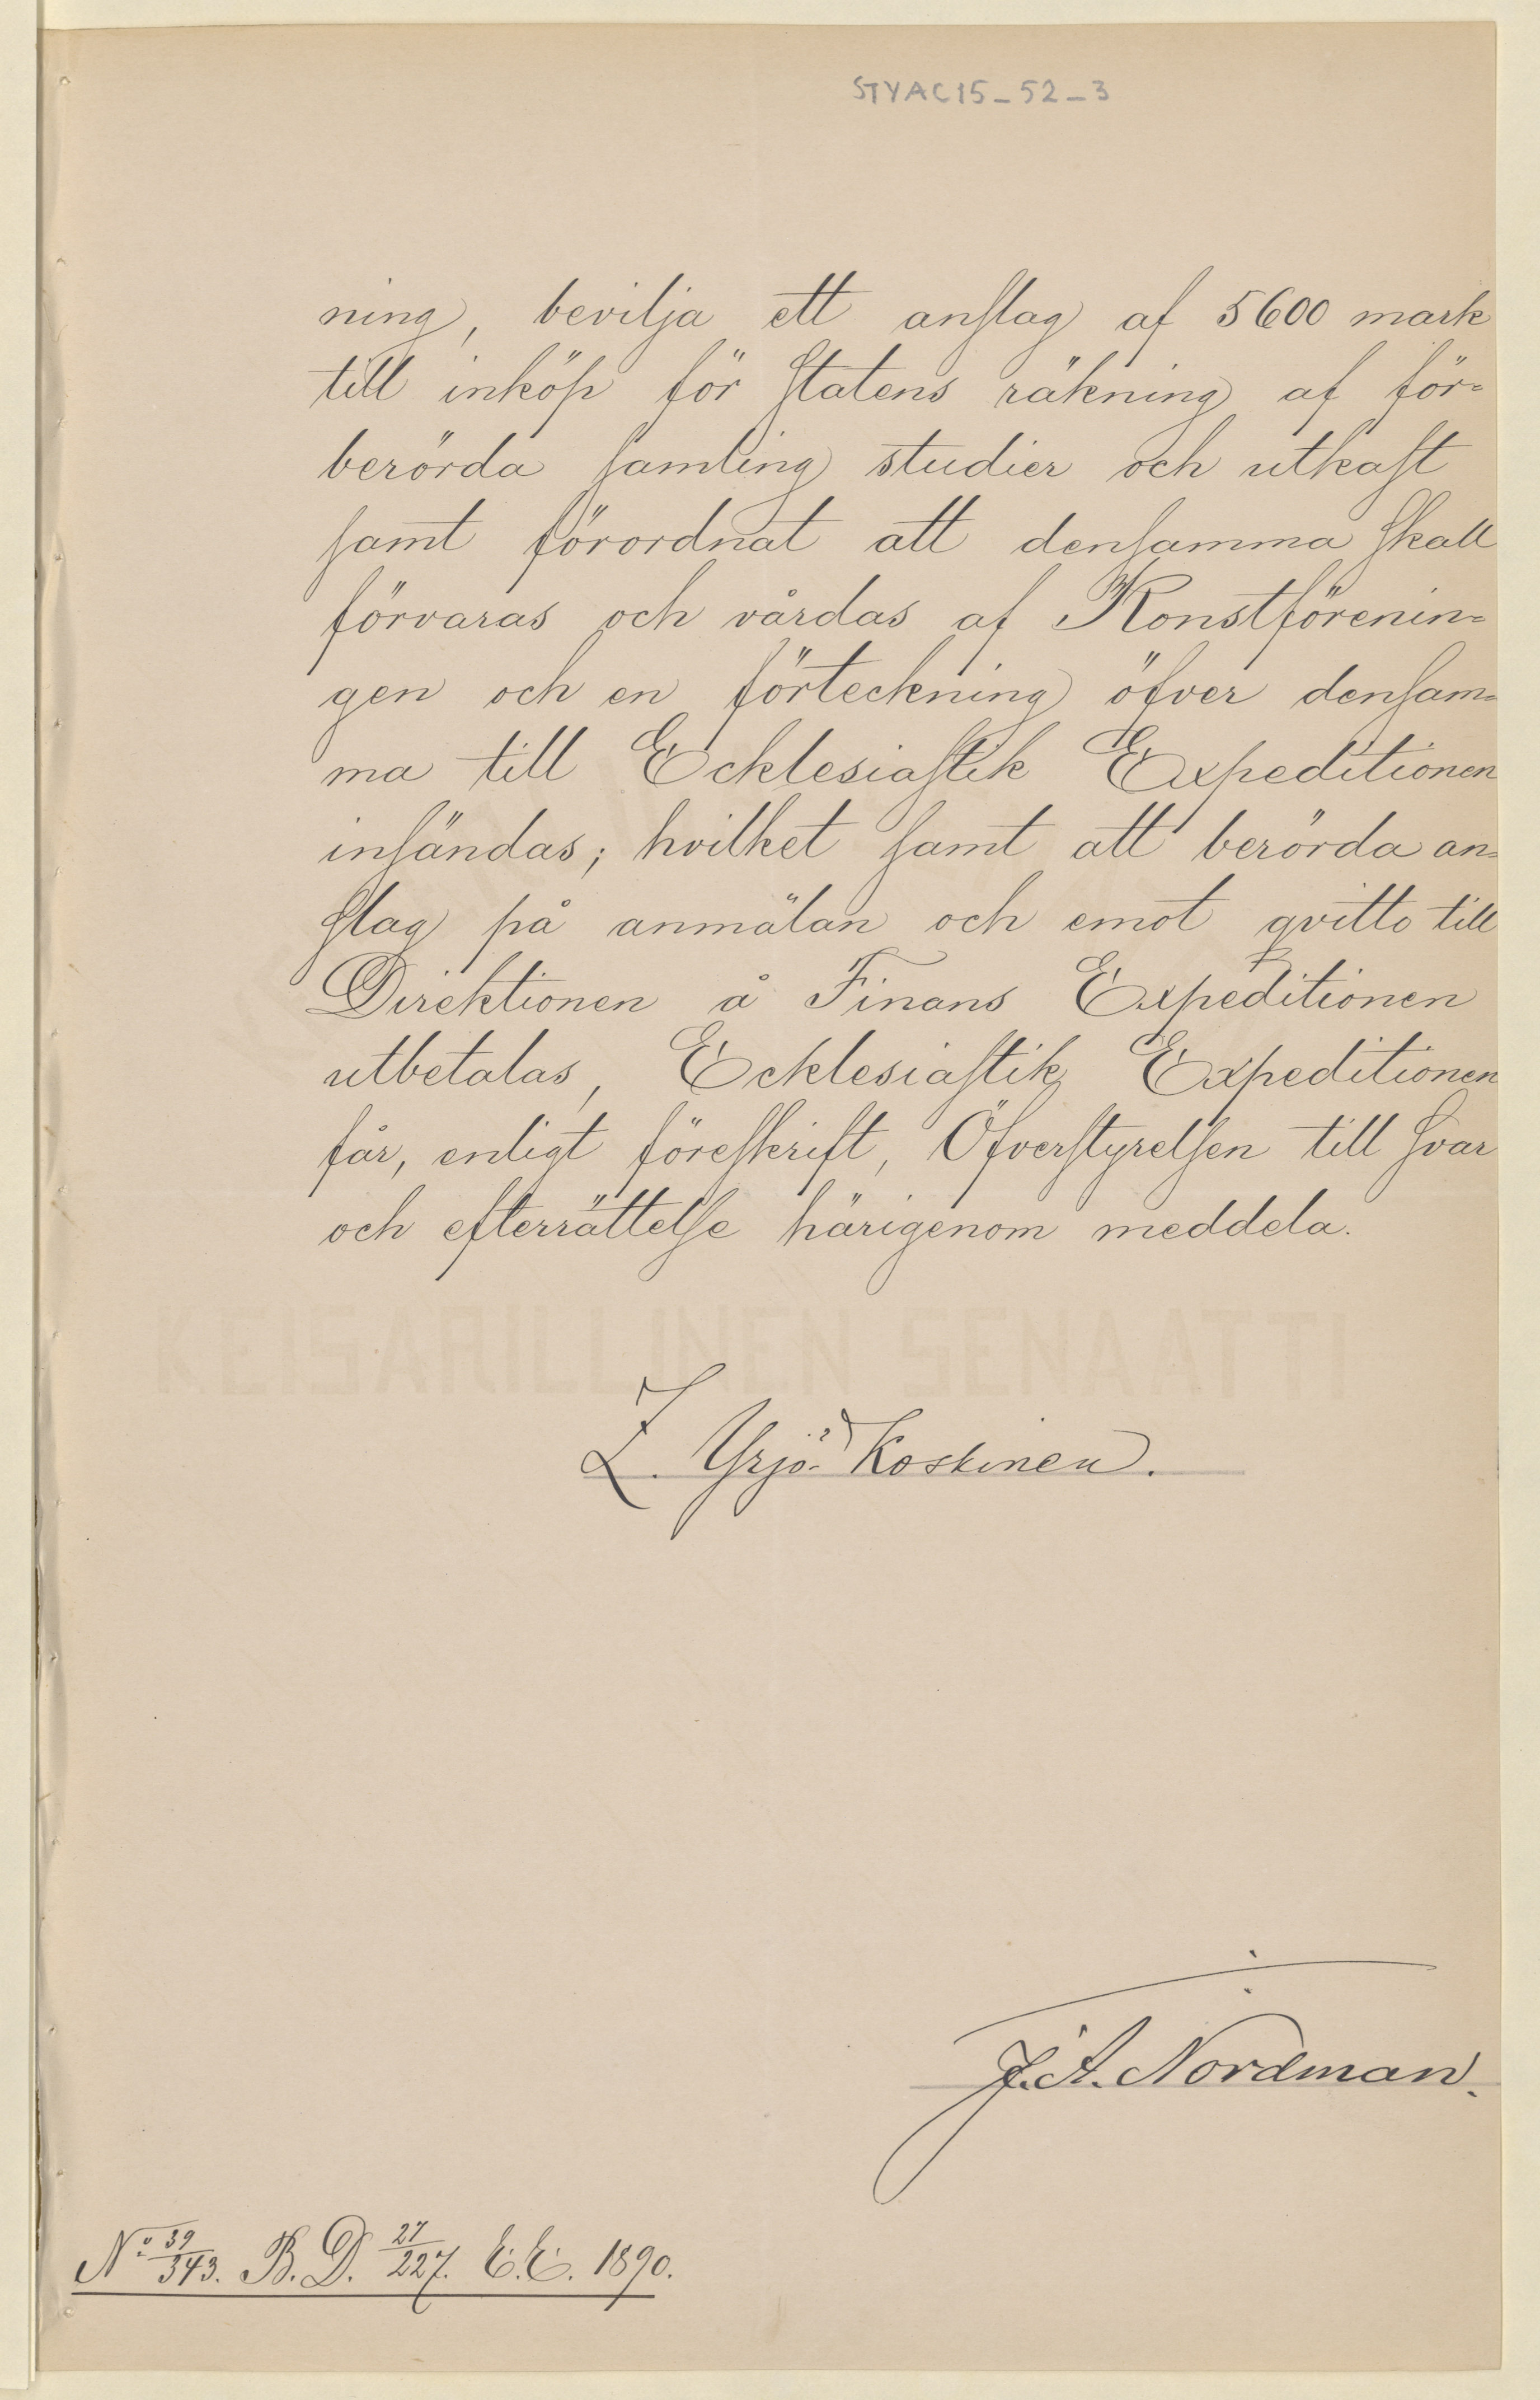 STYAC15_52_3
ning, bevilja ett anslag af 5600 mark
till inköp för Statens räkning af för-
berörda samling studier och utkast
samt förordnat att densamma skall
förvaras och vårdas af Konstförenin-
gen och en förteckning öfver densam-
ma till Ecklesiastik Expeditionen
insändas; hvilket samt att berörda an-
slag på anmälan och emot qvitto till
Direktionen å Finans Expeditionen
utbetalas, Ecklesiastik Expeditionen
får, enligt föreskrift, Öfverstyrelsen till svar
och efterrättelse härigenom meddela.
KEISARILLINEN SENAATTI
Z. Yrjö-Koskinen.
J. A. Nordman.
No 39/343. B. D. 27/227. E. E. 1890.